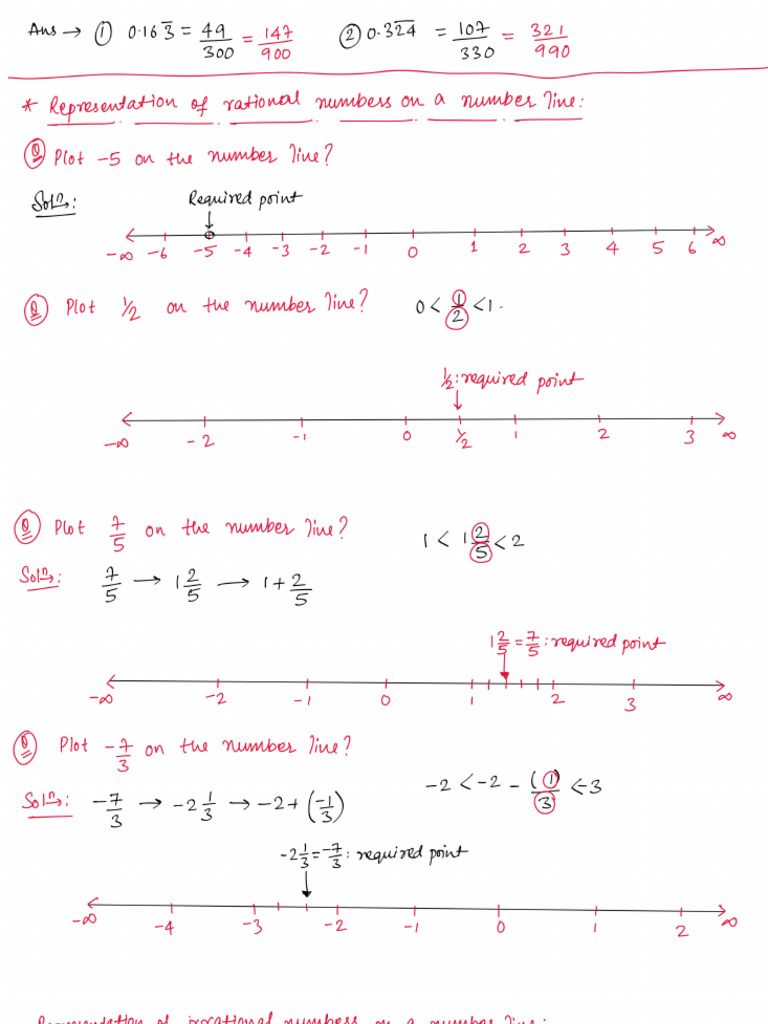 Ans → ① 0.163̅ = 49/300 = 147/900 ② 0.3̅2̅4̅ = 107/330 = 321/990
* Representation of rational numbers on a number line:
Q Plot -5 on the number line?
Soln:
Required point
-∞ -6 -5 -4 -3 -2 -1 0 1 2 3 4 5 6 ∞
Q Plot 1/2 on the number line? 0 < 1/2 < 1.
1/2: required point
-∞ -2 -1 0 1/2 1 2 3 ∞
Q Plot 7/5 on the number line? 1 < 1 2/5 < 2
Soln: 7/5 → 1 2/5 → 1 + 2/5
1 2/5 = 7/5 : required point
-∞ -2 -1 0 1 2 3 ∞
Q Plot -7/3 on the number line?
Soln: -7/3 → -2 1/3 → -2 + (-1/3) -2 < -2 - (1/3) < -3
-2 1/3 = -7/3 : required point
-∞ -4 -3 -2 -1 0 1 2 ∞
Representation of irrational numbers on a number line: